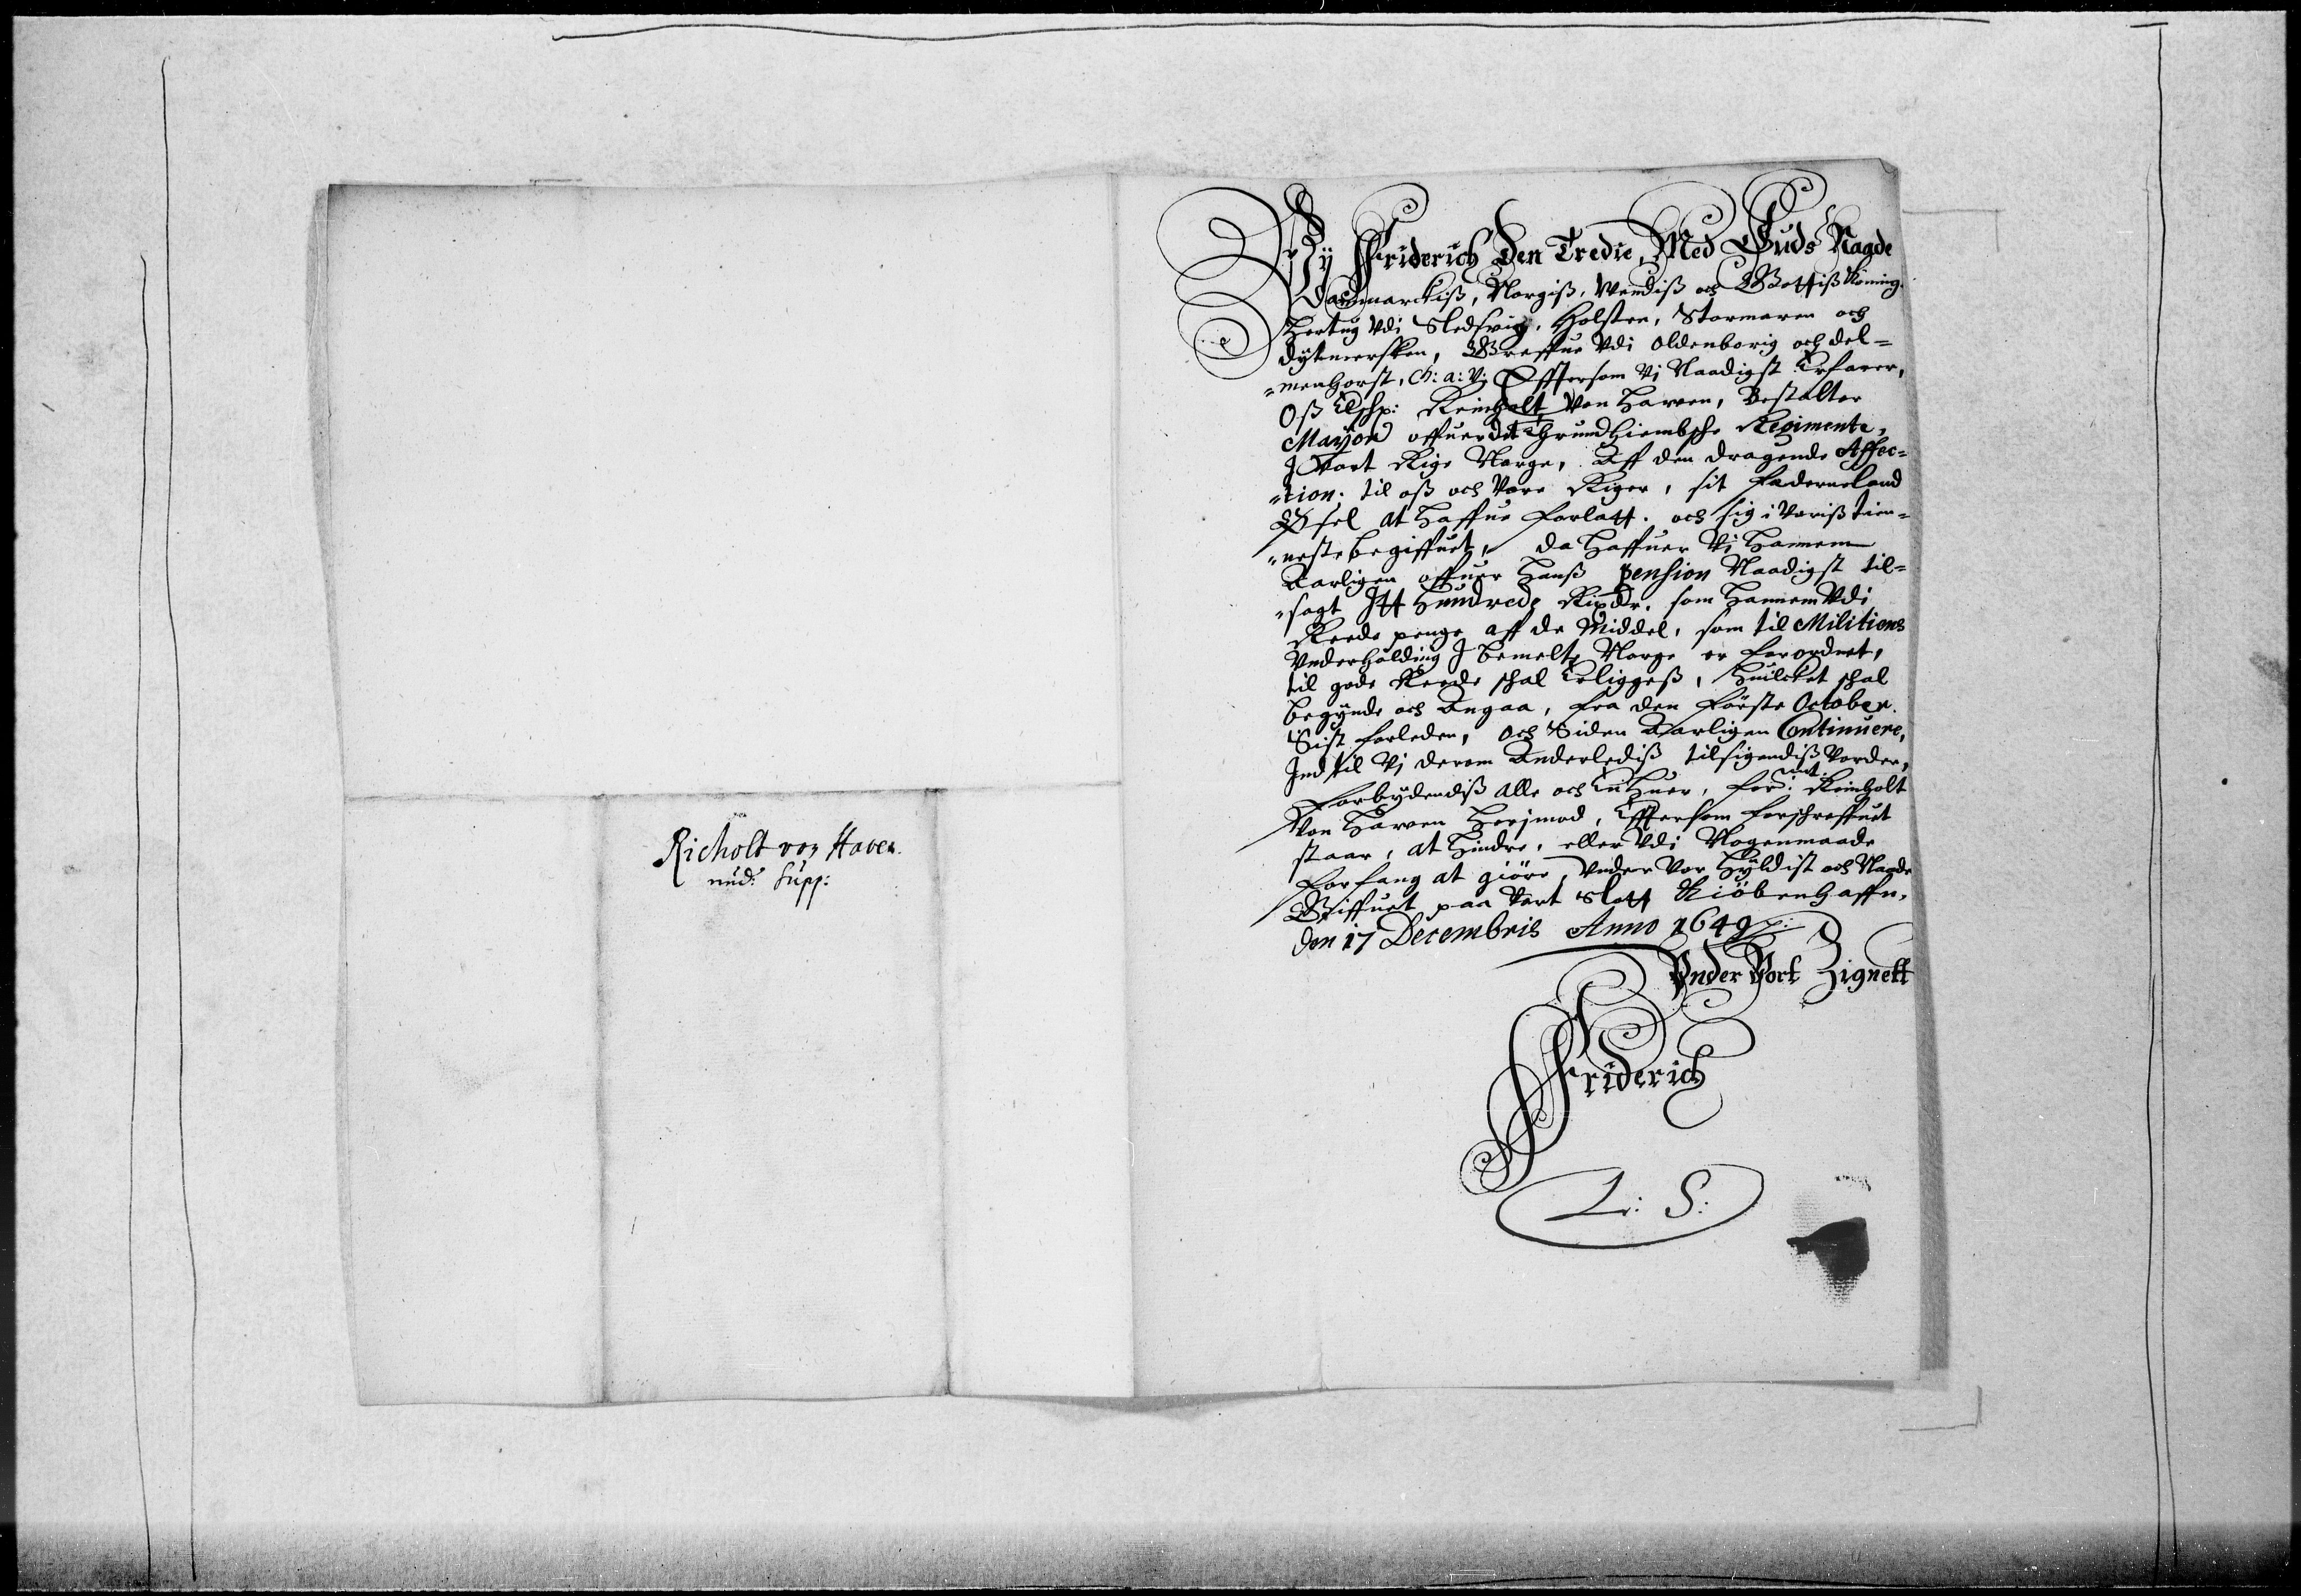 Richolt von Haven
und: Supp:
Wy Friderich den Tredie, Med Guds Naade
Danmarckiß, Norgiß, Wendiß och Gottiß Koning,
Hertug Udi Sledsvig, Holsten, Stormaren och
Dytmersken, Greffue Udi Oldenborig och Del=
=menhorst, G: a: V: Effttersom Vj Naadigst Erfarer,
Oß Elschp: Reinholt Von Haven, Bestalter
Mayor offuer det Thrundhiembsche Regimente,
J Vort Rige Norge, Aff den dragende Affec=
=tion til oß och Vore Riger, sit Faderneland
Øsel at Haffue forlatt, och sig i Voriß tien=
=neste begiffuet, da Haffuer Vj Hannem
Aarligen offuer Hanß Pension Naadigst til=
=sagt Jtt Hundrede Rixdlr. som Hannem Udi
Reede penge aff de Middel, som til Militiens
Underholding J bemelte Norge er forordnet,
til gode Reede schal Erliggeß, Huilcket schal
begynde och Angaa, fra den Förste October
Sist forleden, och Siden Aarligen Continuere,
Ind til Vj derom Anderlediß tilsigendiß Vorder,
Forbydendiß alle och En Huer, for:nt Reinholt
Von Haven Herjmod, Effttersom forschreffuet
staar, at Hindre, eller Udi Nogenmaade
forfang at giöre, Under Vor Hyldist och Naade
Giffuet paa Vort Slott Kiöbenhaffn,
den 17 Decembris Anno 1649 p:
Under Vort Zignett
Friderich
L: S: